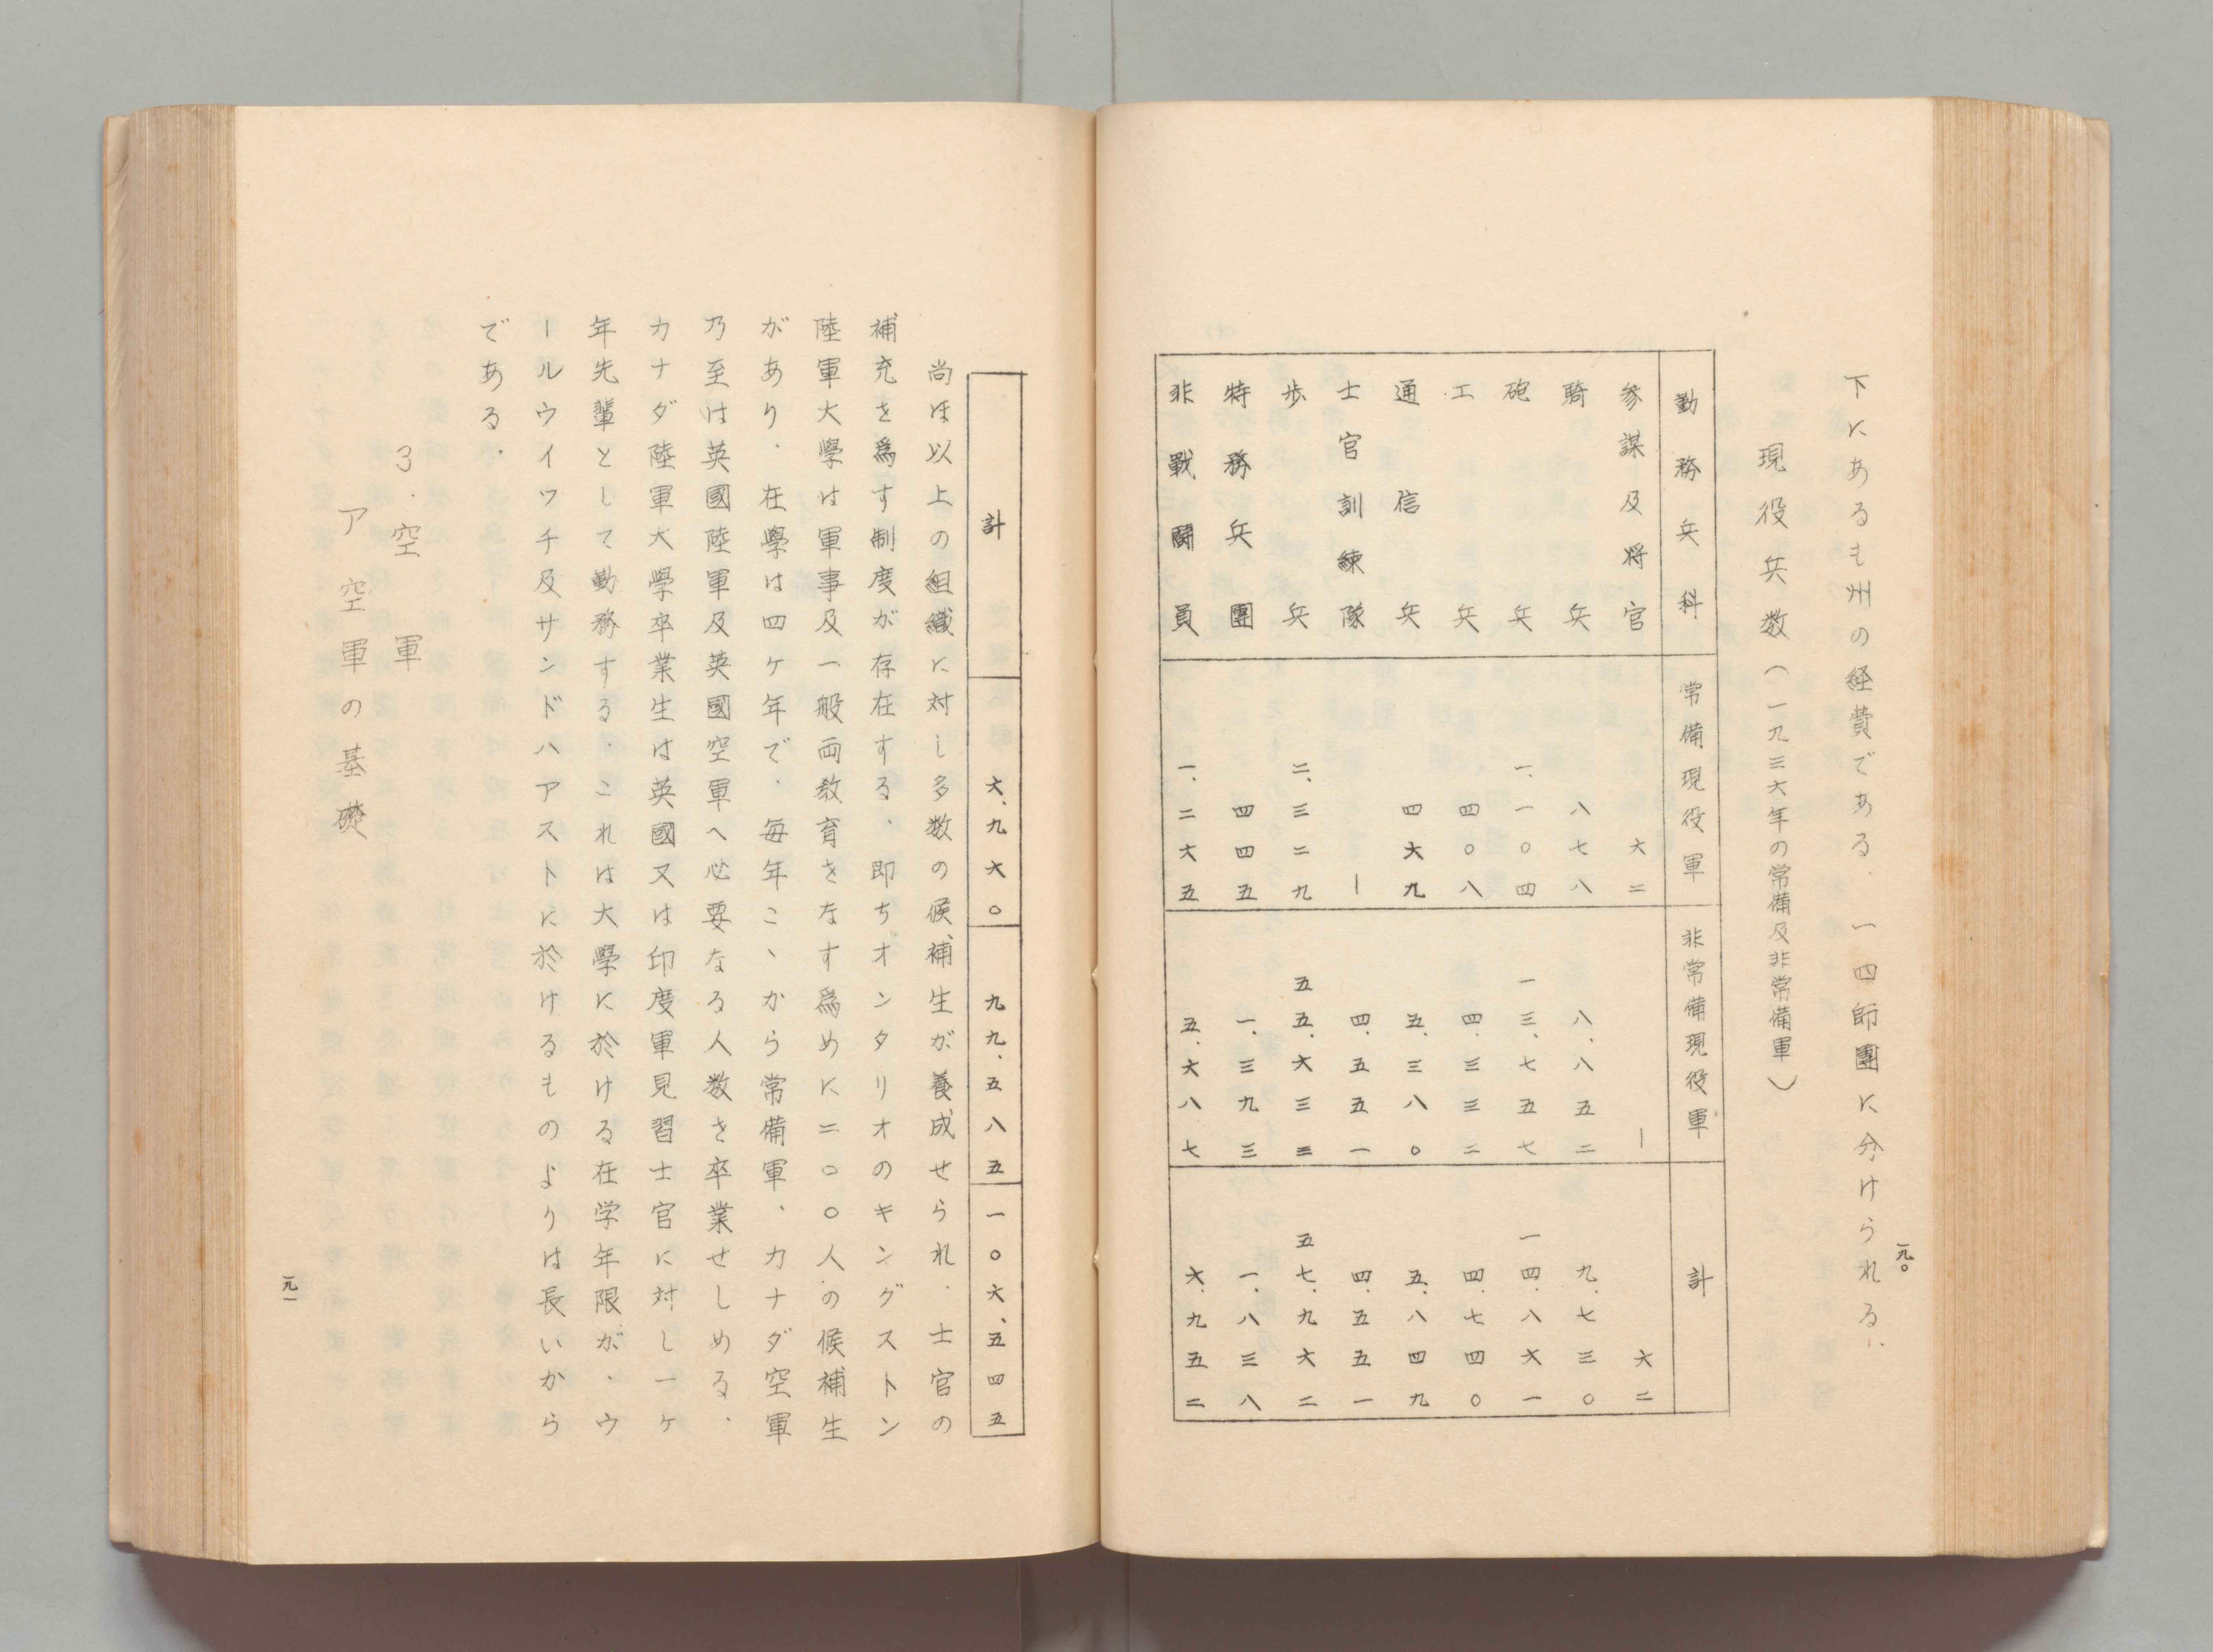 下にあるも州の経費である．一四師團に分けられる．
現役兵数（一九三六年の常備及非常備軍）
勤務兵科　常備現役軍　非常備現役軍　計
参謀及将官　六二　―　六二
騎兵　八七八　八、八五二　九、七三〇
砲兵　一、一〇四　一三、七五七　一四、八六一
工兵　四〇八　四、三三二　四、七四〇
通信兵　四六九　五、三八〇　五、八四九
士官訓練隊　―　四、五五一　四、五五一
歩兵　二、三二九　五五、六三三　五七、九六二
特務兵團　四四五　一、三九三　一、八三八
非戰鬪員　一、二六五　五、六八七　六、九五二
一九〇
計　六、九六〇　九九、五八五　一〇六、五四五
尚ほ以上の組織に対し多数の候補生が養成せられ．士官の
補充を爲す制度が存在する、即ちオンタリオのキングストン
陸軍大學は軍事及一般両教育をなす爲めに二〇〇人の候補生
があり．在學は四ヶ年で．毎年こゝから常備軍、カナダ空軍
乃至は英國陸軍及英國空軍へ必要なる人数を卒業せしめる．
カナダ陸軍大學卒業生は英國又は印度軍見習士官に対し一ヶ
年先輩として勤務する．これは大學に於ける在学年限が．ウ
ールウイッチ及サンドハアストに於けるものよりは長いから
である．
3．空軍
ア　空軍の基礎
一九一